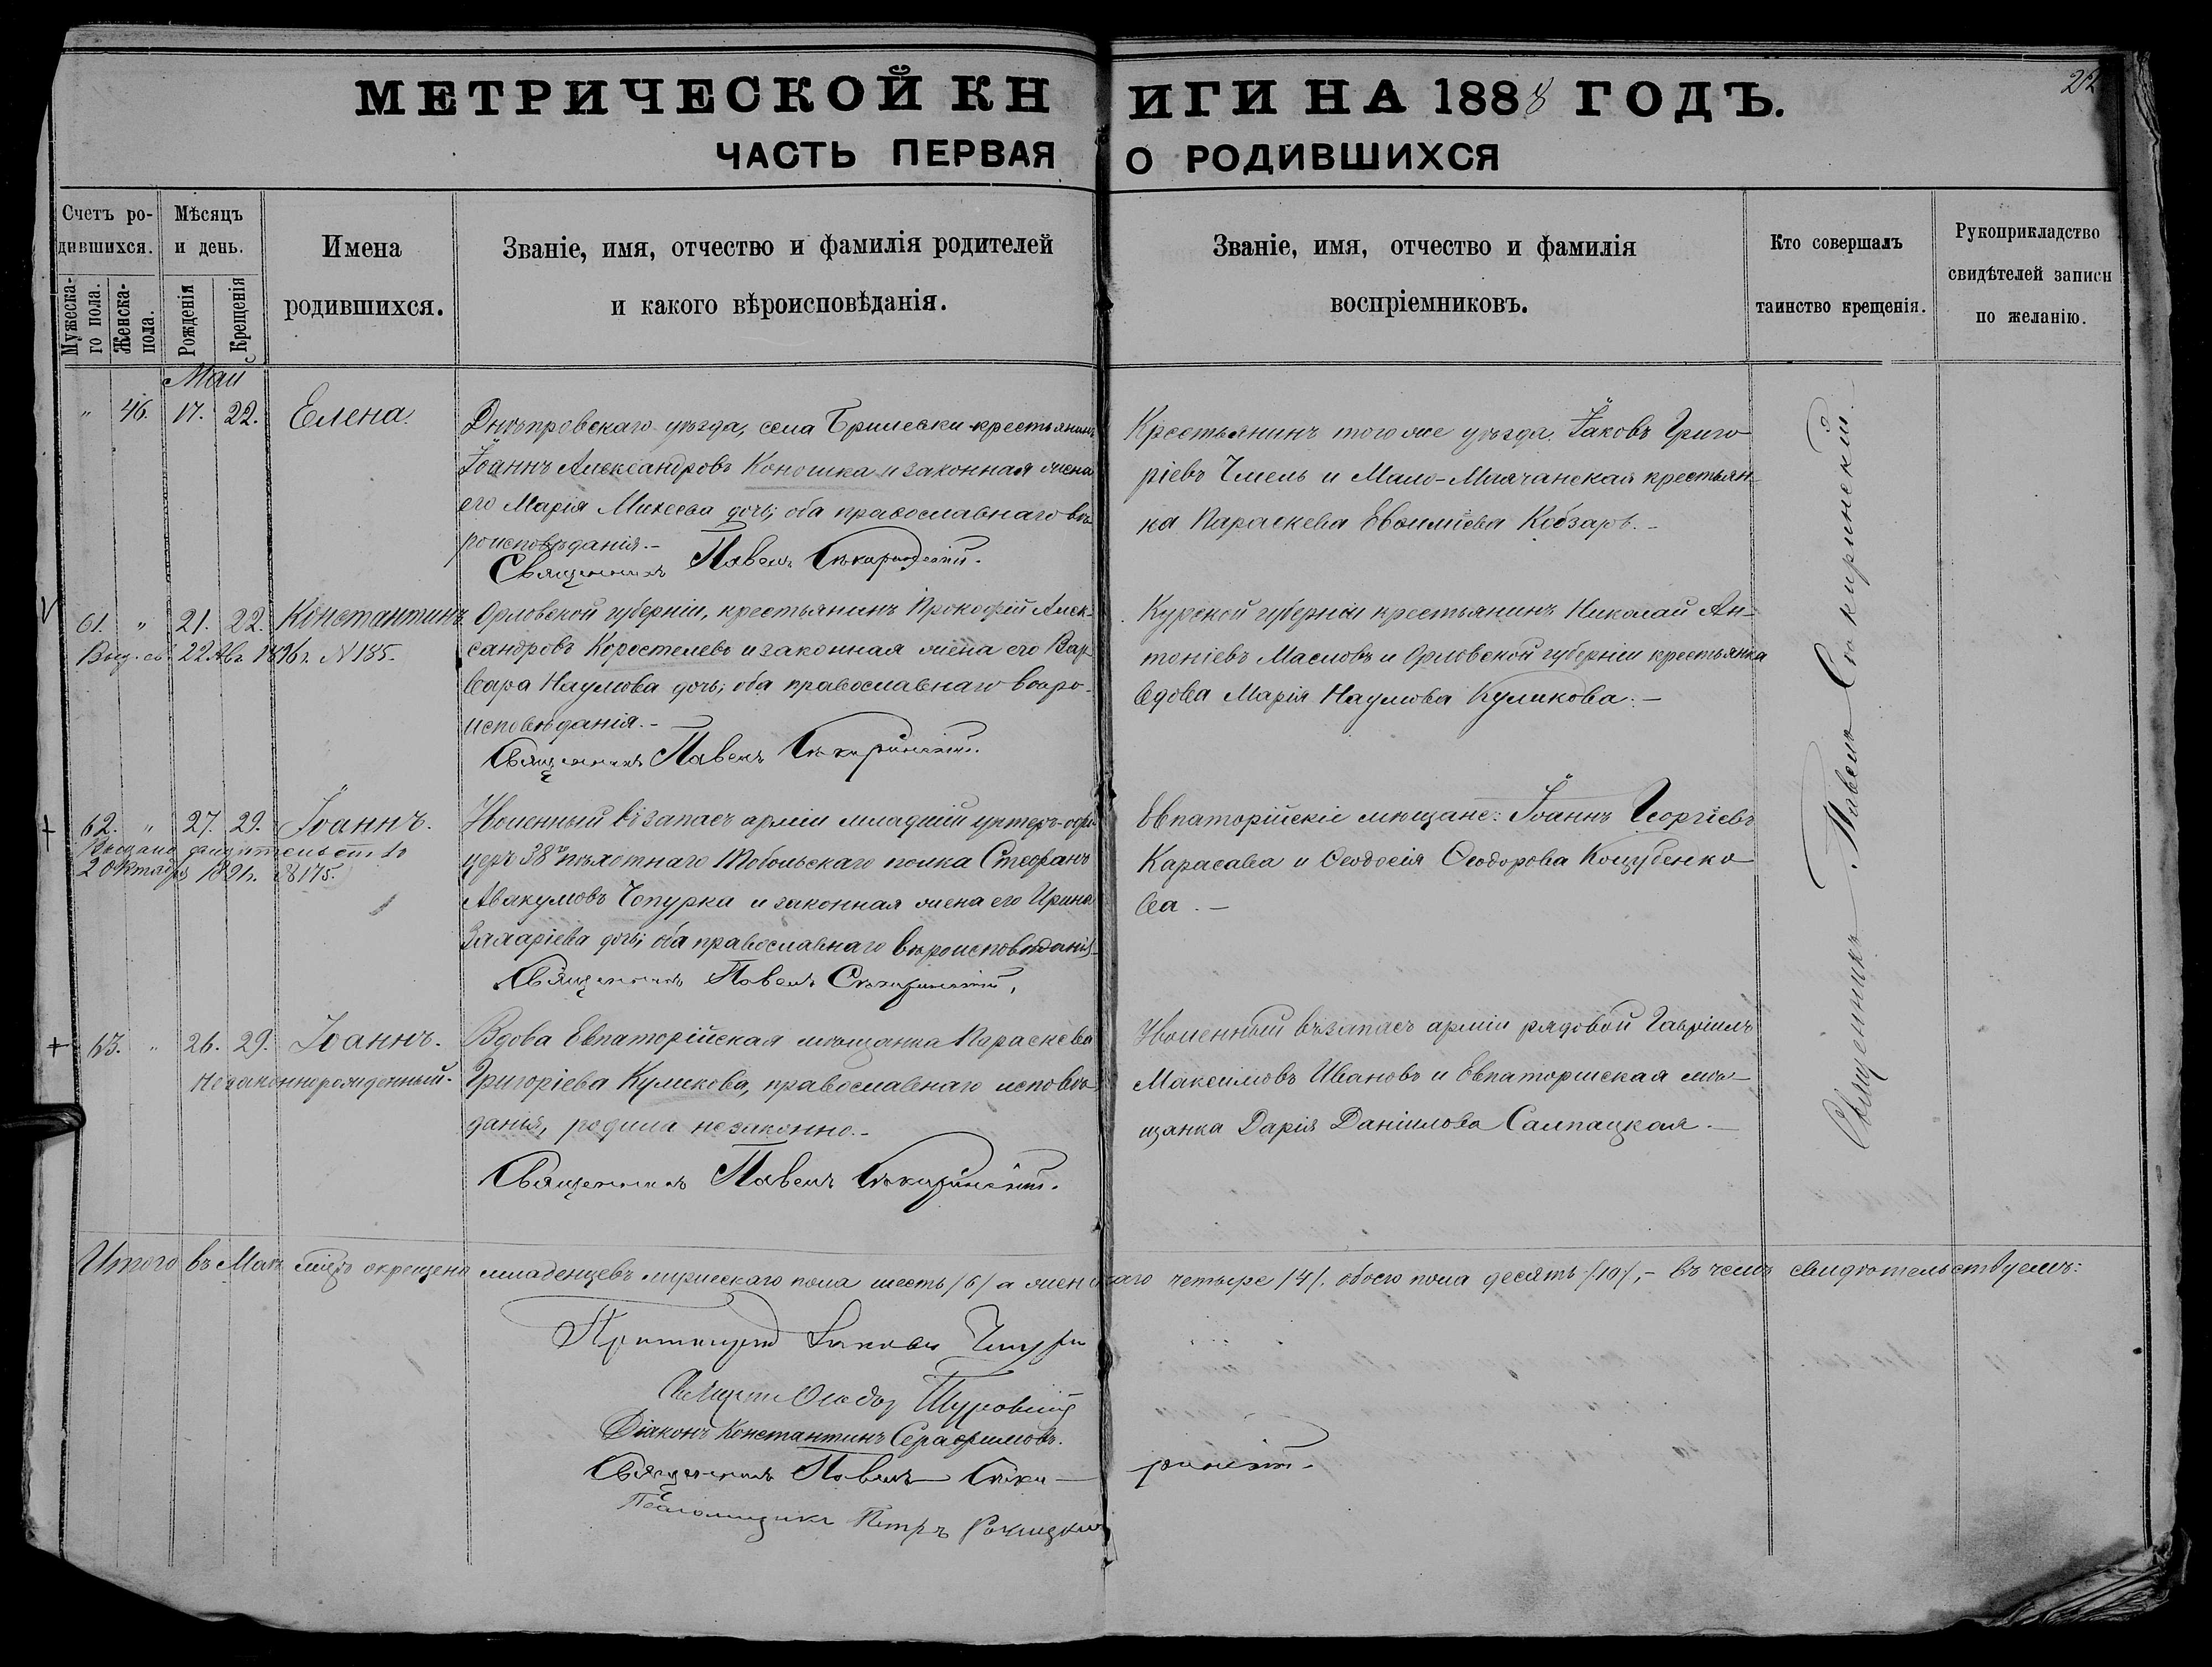 МЕТРИЧЕСКОЙ КНИГИ НА 1888 ГОДЪ.
ЧАСТЬ ПЕРВАЯ О РОДИВШИХСЯ
Счетъ ро-
дившихся.
Мужеска-
го пола.
Женска-
пола.
Мѣсяцъ
и день.
Рожденія
Крещенія
Имена
родившихся.
Званіе, имя, отчество и фамилія родителей
и какого вѣроисповѣданія.
Званіе, имя, отчество и фамилія
воспріемниковъ.
Кто совершалъ
таинство крещенія.
Рукоприкладство
свидѣтелей записи
по желанію.
Маи
" 46. 17. 22. Елена.
Днѣпровскаго уѣзда, села Брилевки крестьянинъ
Іоаннъ Александровъ Коношка и законная жена
его Марія Михеева дочь; оба православнаго вѣ-
роисповѣданія.-
Священникъ Павелъ
Крестьянинъ того же уѣзда Іаковъ Григо-
ріевъ Чмель и Мало-Маячанская крестьян-
ка Параскева Евѳиміева Кобзарь.-
61. " 21. 22. Константинъ
Выд. св. 22 Авг. 1896 г. N 185.
Орловской губерніи, крестьянинъ Прокофій Алек-
сандровъ Коростелевъ и законная жена его Вар-
вара Наумова дочь; оба православнаго вѣро-
исповѣданія.-
Священникъ Павелъ
Курской губерніи крестьянинъ Николай Ан-
тоніевъ Масловъ и Орловской губерніи крестьянка
вдова Марія Наумова Куликова.-
62. " 27. 29. Іоаннъ.
Выдано свидѣтельство
2 Октября 189 г. №175.
Уволенный въ запасъ арміи младшій унтеръ-офи-
церъ 38го пѣхотнаго Тобольскаго полка Стефанъ
Авакумовъ Чопурка и законная жена его Ирина
Захаріева дочь; оба православнаго вѣроисповѣданія
Священникъ Павелъ
Евпаторійскіе мѣщане: Іоаннъ Георгіевъ
Карасава и Ѳеодосія Ѳеодорова Коцубенко
ва.-
63. " 26. 29. Іоаннъ.
Незаконнорожденный.
Вдова Евпаторійская мѣщанка Параскева
Григоріева Куликова, православнаго исповѣ-
данія, родила незаконно.-
Священникъ Павелъ
Уволенный въ запасъ арміи рядовой Гавріилъ
Максимовъ Ивановъ и Евпаторійская мѣ-
щанка Дарія Даніилова Салпацкая.-
Священникъ Павелъ
Итого въ Маѣ мѣсяцѣ окрещено младенцевъ мужескаго пола шесть /6/ а женскаго четыре /4/. обоего пола десять /10/,- въ чемъ свидѣтельствуемъ:
Протоіерей Іаковъ
Священникъ Ѳеодоръ
Діаконъ Константинъ Серафимовъ.
Священникъ Павелъ
Псаломщикъ Петръ